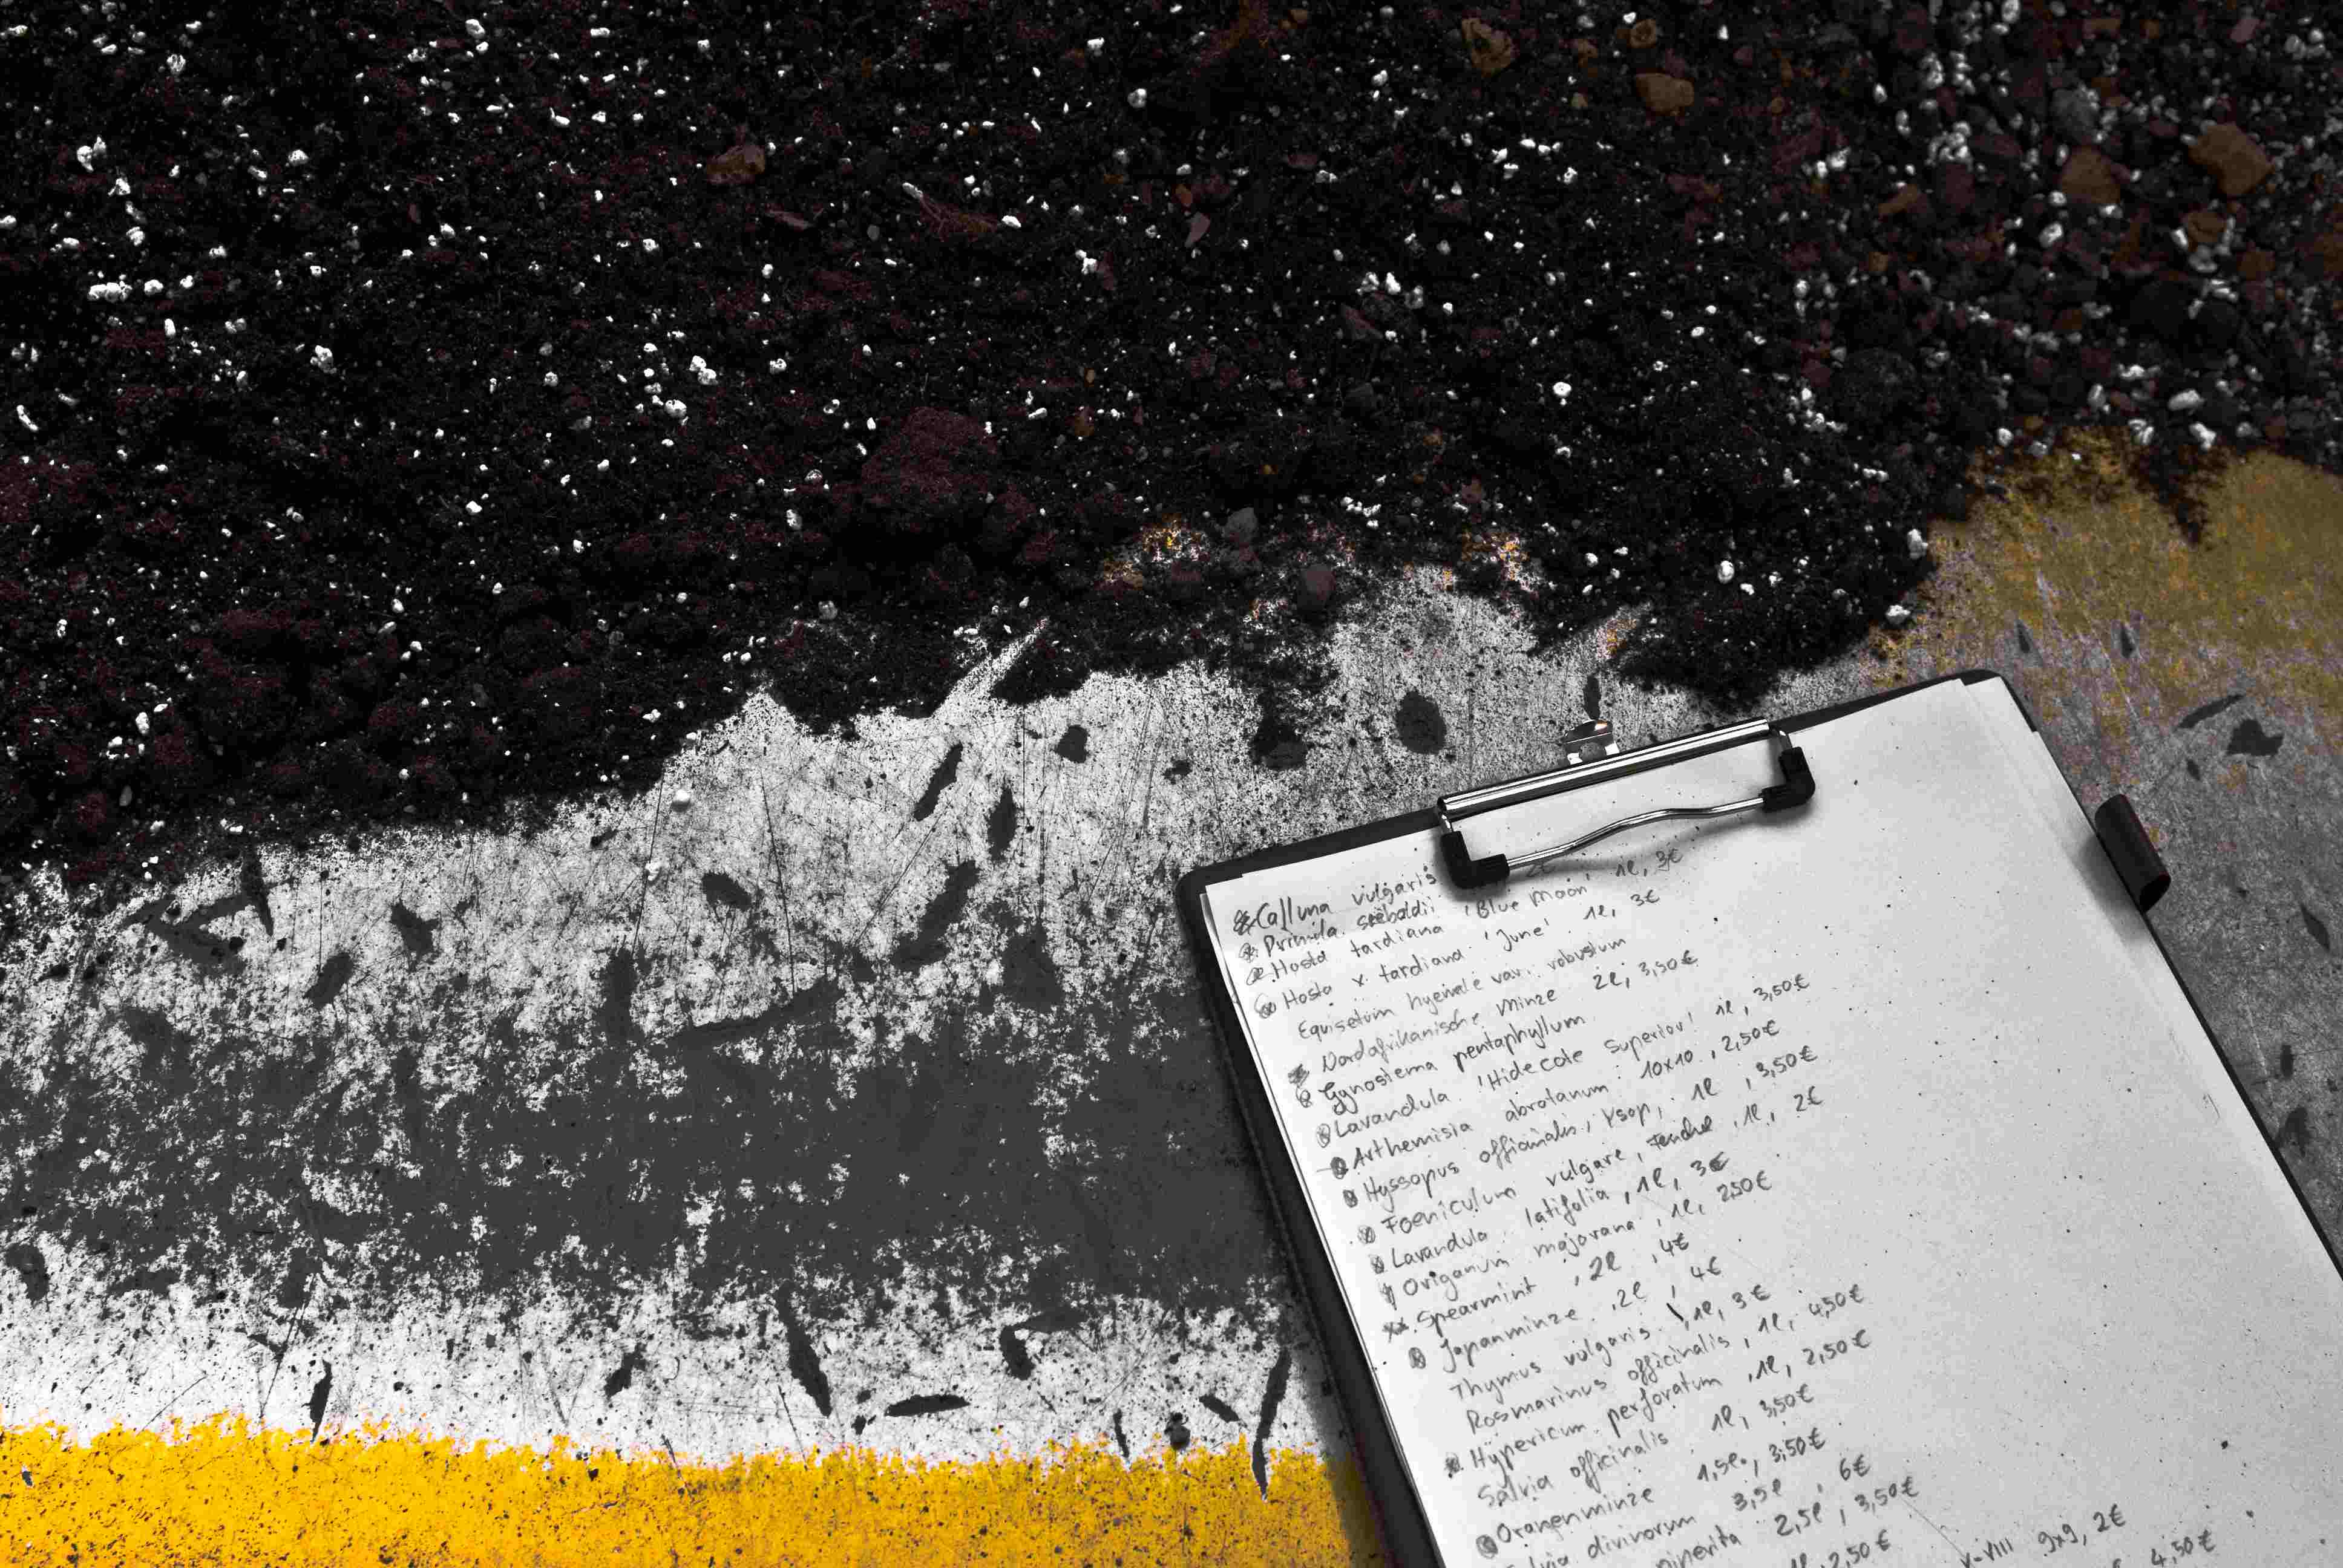 Calluna vulgaris 2l
Primula sieboldii 'Blue Moon' 1l, 3€
Hosta tardiana
Hosta x tardiana 'June' 1l, 3€
Equisetum hyemale var. robustum
Nordafrikanische Minze 2l, 3,50€
Gynostema pentaphyllum
Lavandula 'Hidecole Superior' 1l, 3,50€
Arthemisia abrotanum 10x10, 2,50€
Hyssopus officinalis, Ysop, 1l, 3,50€
Foeniculum vulgare, Fenchel, 1l, 2€
Lavandula latifolia, 1l, 3€
Origanum majorana, 1l, 2,50€
Spearmint, 2l, 4€
Japanminze, 2l, 4€
Thymus vulgaris, 1l, 3€
Rosmarinus officinalis, 1l, 4,50€
Hypericum perforatum, 1l, 2,50€
Salvia officinalis 1l, 3,50€
Orangenminze 1,5l, 3,50€
Salvia divinorum 3,5l, 6€
2,5l, 3,50€
1l, 2,50€
V-VIII 9x9, 2€
4,50€